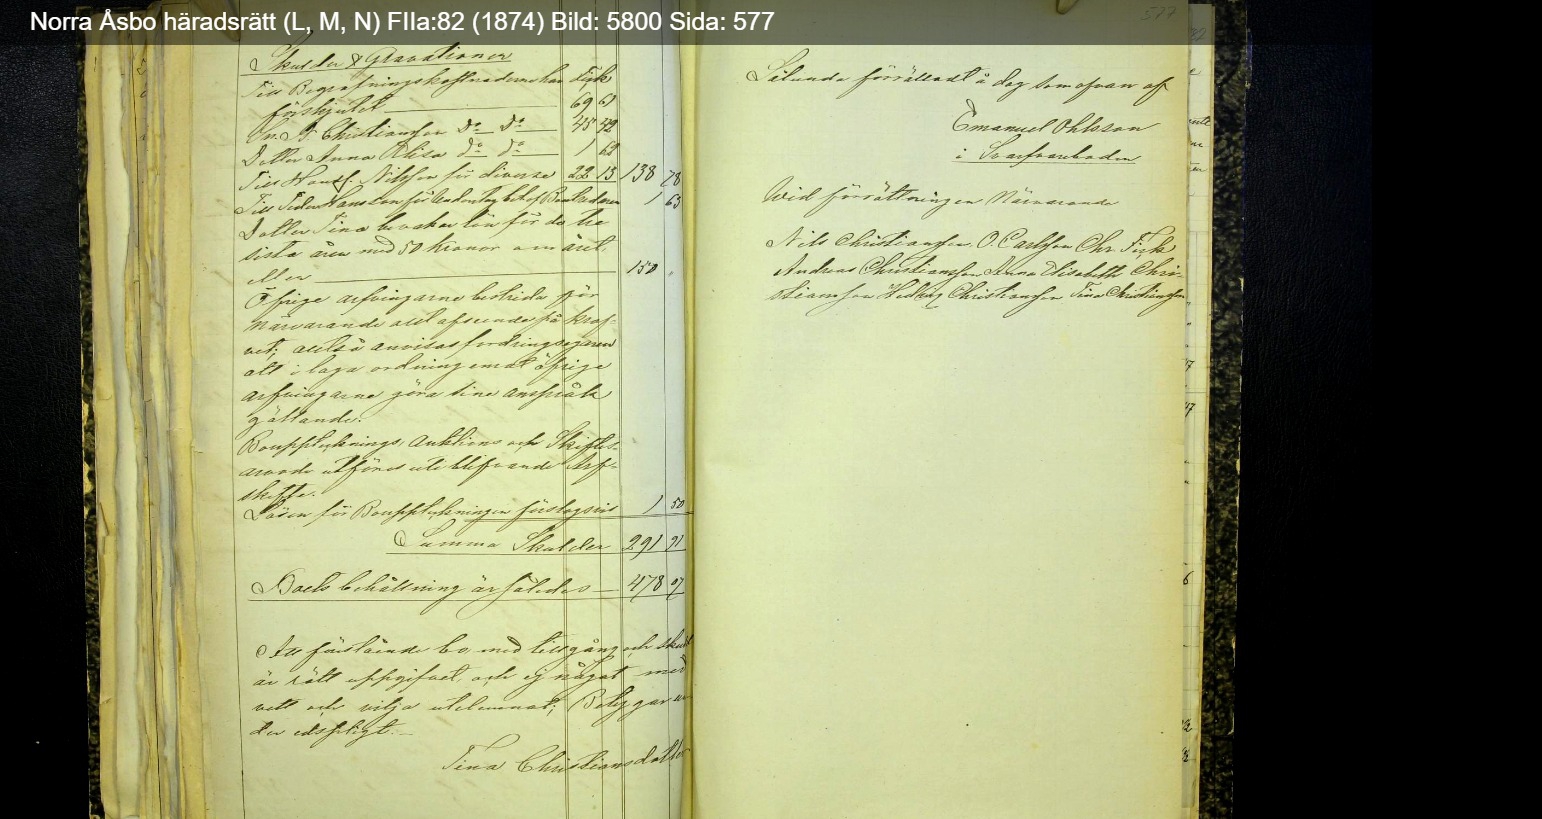 Norra Åsbo häradsrätt (L, M, N) FIIa:82 (1874) Bild: 5800 Sida: 577
577
Skulder & Gravationer
Till Begrafningskostnaderna har Fisk
förskjutit 69 61
On. N Christiansson Do Do 45 42
Dotter Anna Elisa Do Do 1 62
Till Hand. Nilsson för diverse 22 13 138 78
Till Peder Hansson för
1 63
Dotter Tina bevakar lön för de tre
sista åren med 50 kronor om året
eller 150 "
Öfrige arfvingarne bestrida för
närvarande allt afseende på kraf-
vet; alltså anvisas fordringsegaren
att i laga ordning emot öfrige
arfvingarne göra sine anspråk
gällande.
Bouppteknings, Auktions och Skiftes-
arvode utföres ute blifvande Arf-
skifte.
Lösen för Bouppteckningen förslagsvis 1 50
Summa Skulder 291 91
Boets behållning är således 478 07
Att förestående bo med tillgång och skuld
är rätt uppgifvet och ej något med
vett och vilja utelemnat; Betygar un-
der edspligt.
Tina Christiansdotter
Sålunda förrättadt å dag som ofvan af
Emanuel Ohlsson
i Svarfvareboden
Wid förrättningen Närvarande
Nils Christiansson O. Carlsson Chr. Fisk
Andreas Christiansson Anna Elisabeth Chri-
stiansson Hedvig Christiansson Tina Christiansson